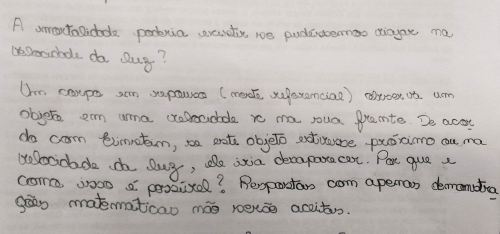 A imortalidade poderia existir se pudéssemos viajar na
velocidade da luz?
Um corpo em repouso (neste referencial) observa um
objeto em uma velocidade v na sua frente. De acor
do com Einstein, se este objeto estivesse próximo ou na
velocidade da luz, ele iria desaparecer. Por que e
como isso é possível? Respostas com apenas demonstra
ções matemáticas não serão aceitas.